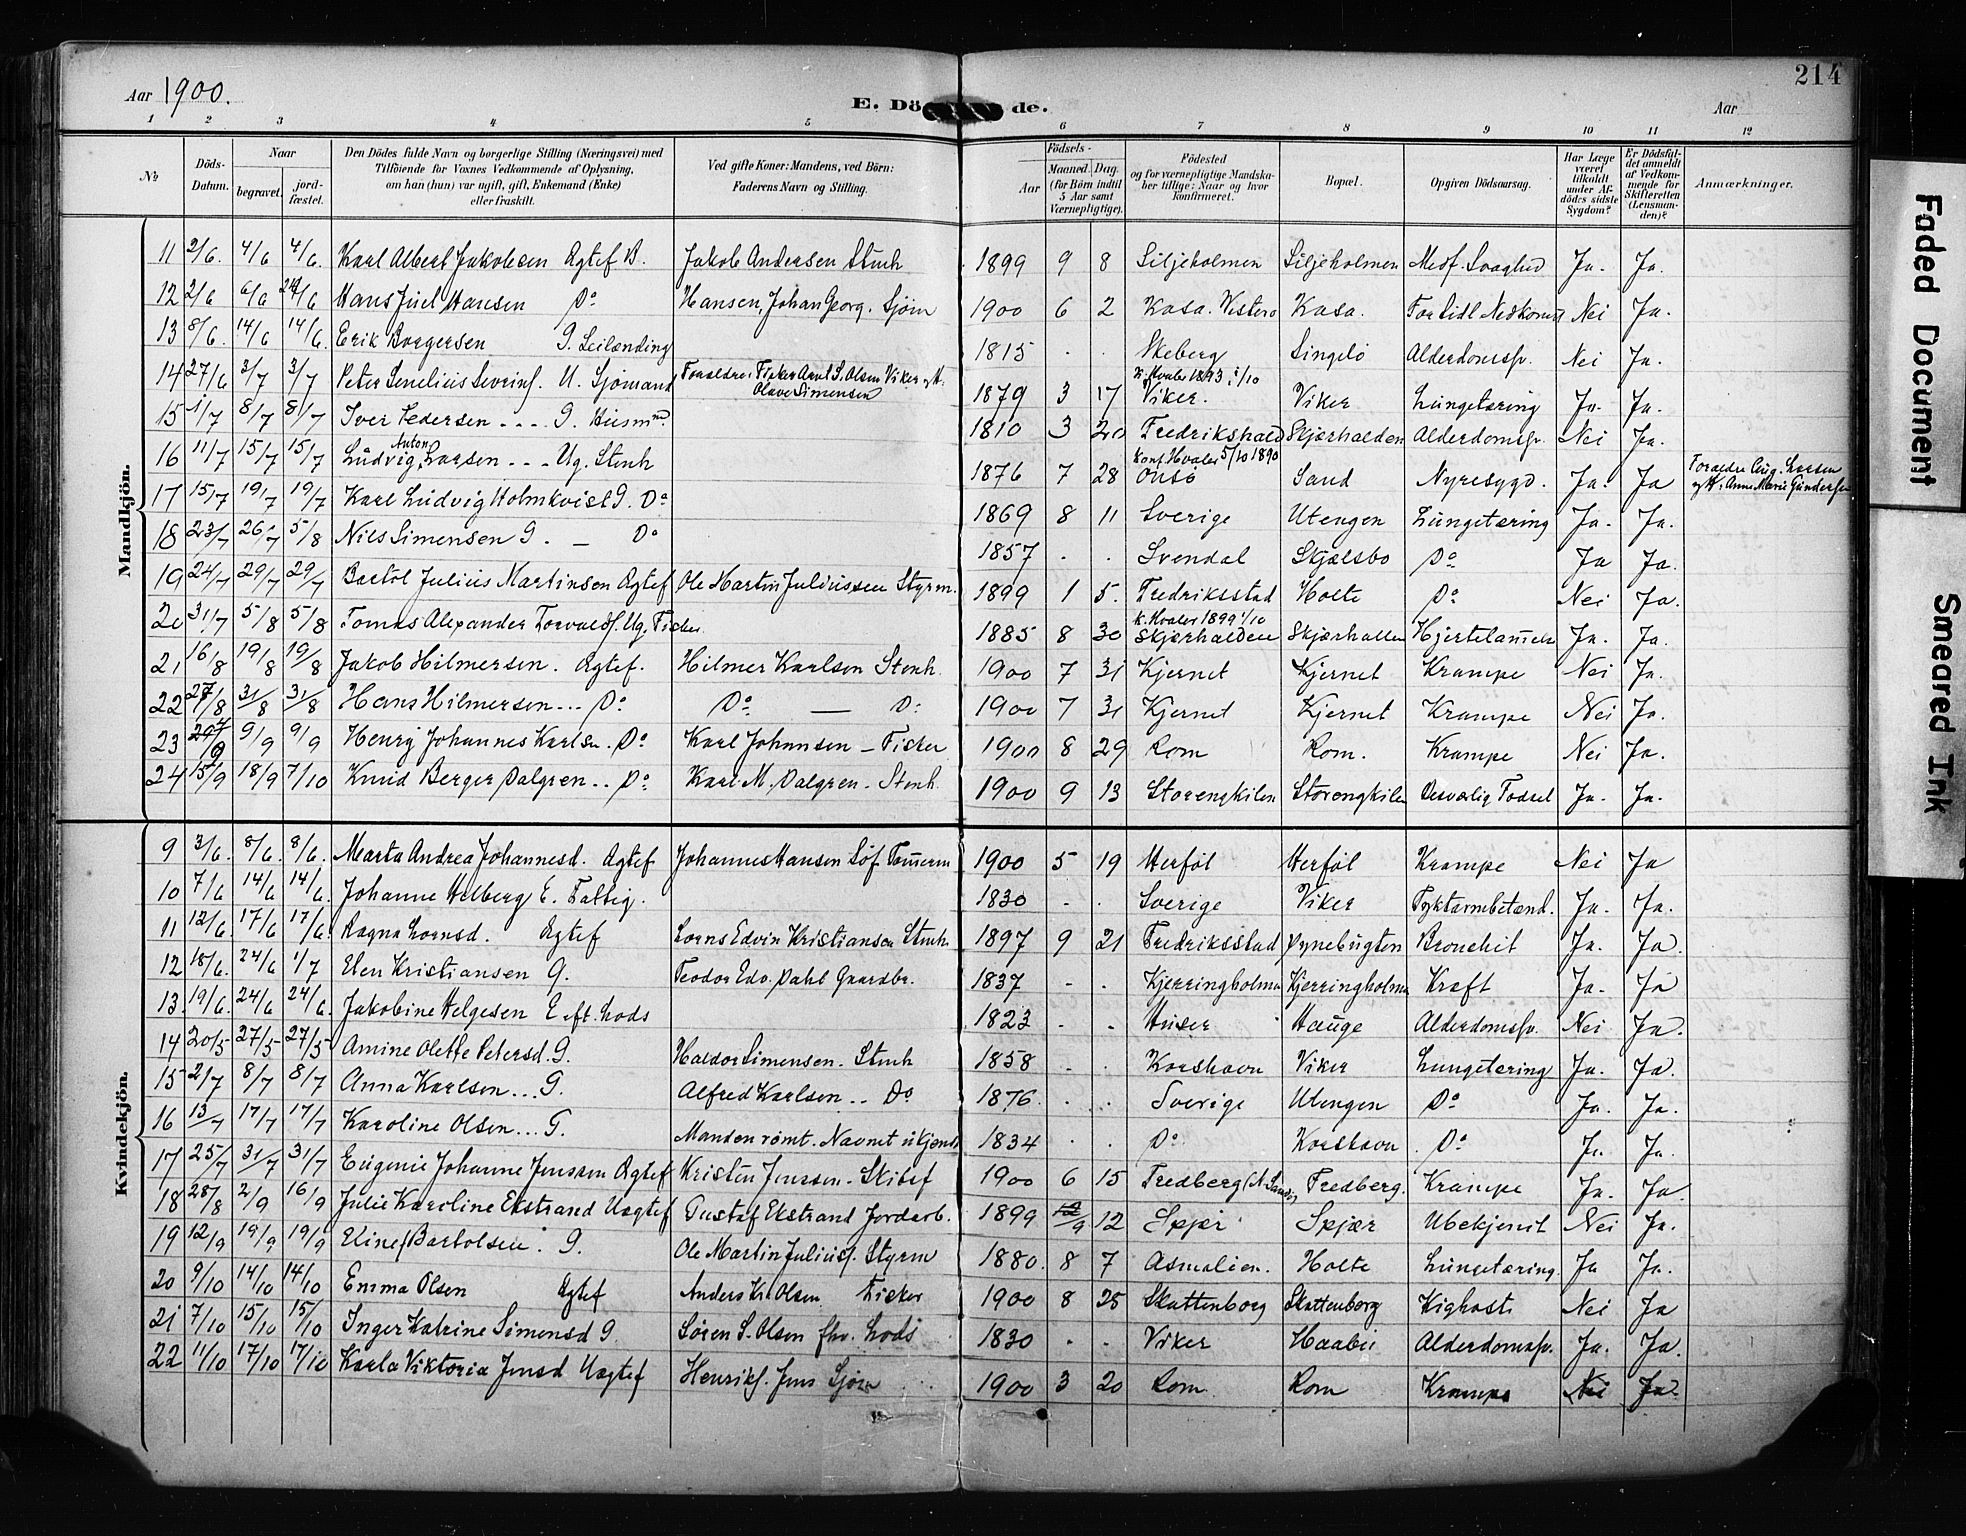 Aar 1900. E. Dö de. Aar 214
1 2 3 4 5 6 7 8 9 10 11 12
No Döds-Datum. Naar begravet. jord-fæstet. Den Dödes fulde Navn og borgerlige Stilling (Næringsvei) med Tilföiende for Voxnes Vedkommende af Oplysning, om han (hun) var ugift, gift, Enkemand (Enke) eller fraskilt. Ved gifte Koner: Mandens, ved Börn: Faderens Navn og Stilling. Födsels- Aar Maaned. Dag. (for Börn indtil 5 Aar samt Værnepligtige). Födested og for værnepligtige Mandskaber tillige: Naar og hvor konfirmeret. Bopæl. Opgiven Dödsaarsag. Har Læge været tilkaldt under Afdödes sidste Sygdom? Er Dödsfaldet anmeldt af Vedkommende for Skifteretten (Lensmanden)? Anmærkninger.
Mandkjön.
11 2/6. 4/6 4/6. Karl Albert Jakobsen Ægtef B. Jakob Andersen Stenh 1899 9 8 Siljeholmen Siljeholmen Medf. Svaghed Ja. Ja.
12 2/6 6/6 24/6 Hans Juel Hansen Do Hansen, Johan Georg. Sjöm 1900 6 2 Kasa. Vestero Kasa. For tidl Nedkomst Nei Ja.
13 8/6. 14/6 14/6. Erik Borgersen G. Leilænding 1815 . . Skeberg Singelö Alderdomssv. Nei Ja.
14 27/6 3/7 3/7 Peter Senelius Severins. U. Sjömand Forældre: Fisker Arnt S. Olsen Viker og H. Olave Simensen 1879 3 17 K. Hvaler 1893 1/10 Viker. Viker Lungetæring Ja. Ja.
15 1/7 8/7 8/7 Iver Pedersen - - - G. Husmn. 1810 3 20 Fredrikshald Skjærhalden Alderdomssv. Nei Ja.
16 11/7 15/7 15/7 Ludvig Anton Larsen - - - Ug. Stenh 1876 7 28 Konf. Hvaler 5/10 1890 Onsö Sand Nyresygd. Ja. Ja Forældre Aug. Larsen og H. Anne Marie Gundersen
17 15/7 19/7 19/7 Karl Ludvig Holmkvist G. Do 1869 8 11 Sverige Utengen Lungetæring Ja. Ja.
18 23/7 26/7 5/8 Nils Simensen G. - Do 1857 . . Svendal Skjælsbo Do Ja Ja.
19 24/7 29/7 29/7 Bartol Julius Martinsen Ægtef Ole Martin Juliussen Styrm. 1899 1 5. Fredriksstad Holte Do Nei Ja.
20 31/7 5/8 5/8 Tomas Alexander Torvalds. Ug. Fisker 1885 8 30 K. Hvaler 1899 1/10 Skjærhalden Skjærhallen Hjertelammelse Ja. Ja.
21 16/8 19/8 19/8 Jakob Hilmersen. Ægtef. Hilmer Karlsen Stenh. 1900 7 31 Kjernet Kjernet Krampe Nei Ja.
22 27/8 31/8 31/8 Hans Hilmersen... Do Do — Do 1900 7 31 Kjernet Kjernet Krampe Nei Ja.
23 4/9 9/9 9/9 Henry Johannes Karlsn. Do Karl Johansen - Fisker 1900 8 29 Rom Rom. Krampe Nei Ja.
24 15/9 18/9 7/10 Knud Berger Dalgren.. Do Karl M. Dalgren - Stenh. 1900 9 13 Storengkilen Storengkilen Besværlig Fødsel Ja. Ja.
Kvindekjön.
9 3/6. 8/6. 8/6. Marta Andrea Johannesd. Ægtef Johannes Hansen Söf Tömerm 1900 5 19 Herföl Herföl Krampe Nei Ja
10 7/6 14/6 14/6. Johanne Helberg E. Fattig. 1830 - . Sverige Viker Tyktarmbetænd. Ja. Ja.
11 12/6. 17/6 17/6. Ragna Lornsd. Ægtef Lorns Edvin Kristiansen Stenh. 1897 9 21 Fredriksstad Dynebugten Bronchit Ja. Ja.
12 18/6. 24/6 1/7 Elen Kristiansen G. Teodor Edv. Dahl Gaardbr. 1837 - . Kjerringholmen Kjerringholmen Kræft Ja. Ja
13. 19/6 24/6 24/6. Jakobine Helgesen E. eft. Lods 1823 - - Huser Hauge Alderdomssv. Nei Ja.
14 20/5 27/5 27/5 Amine Olette Petersd. G. Haldor Simensen. Stenh 1858 - . Korshavn Viker Lungetæring Ja. Ja.
15 2/7 8/7 8/7 Anna Karlsen... G. Alfred Karlsen.. Do 1876. . . Sverige Utengen Do Ja. Ja.
16 13/7 17/7 17/7 Karoline Olsen... G. Manden römt. Navnet ukjendt 1834 . . Do Korshavn. Do Ja Ja.
17 25/7 31/7 31/7 Eugenie Johanne Jenssen Ægtef Kristen Jenssen - Skibef 1900 6 15 Fredberg (N. Sandö) Fredberg. Krampe Ja. Ja.
18 28/8 2/9 16/9 Julie Karoline Ekstrand Uægtef Gustaf Ekstrand Jordarb. 1899 9 12 Spjær Spjær Ubekjent Nei Ja.
19 12/9 19/9 19/9 Eline Bartolsen. G. Ole Martin Julius. Styrm 1880. 8 7 Asmalien. Holte Lungetæring. Ja Ja.
20 9/10 14/10 14/10 Emma Olsen Ægtef Anders Kr. Olsen. Fisker 1900 8 25 Skattenborg Skattenborg Kighoste Nei Ja
21 7/10 15/10 15/10 Inger Katrine Simensd G. Sören S. Olsen fhv. Lods 1830 . . Viker Haabu Alderdomssv. Ja. Ja.
22 11/10 17/10 17/10 Karla Viktoria Jensd Uægtef Henriks. Jens Sjöm 1900 3 20 Rom Rom Krampe Nei Ja.
Faded Document
Smeared Ink